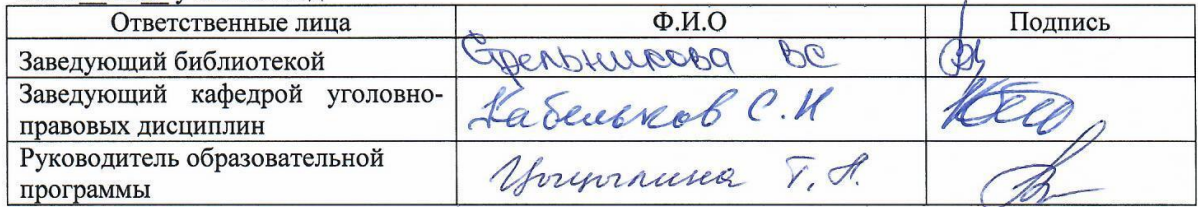 Ответственные лица Ф.И.О Подпись
Заведующий библиотекой Стрельникова ВС
Заведующий кафедрой уголовно-
правовых дисциплин Кабельков С.Н
Руководитель образовательной
программы Т.